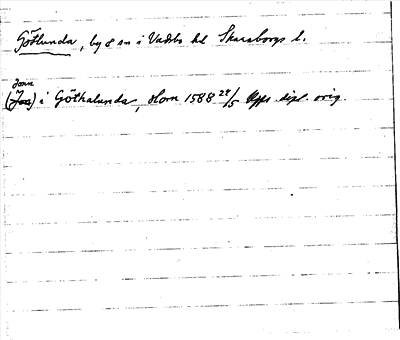 Götlunda, by o sn i Vadsbo hd Skaraborgs l.
Jonn
(Jon) i Göthalunda, Horn 1588 28/5 Upps dipl. orig.